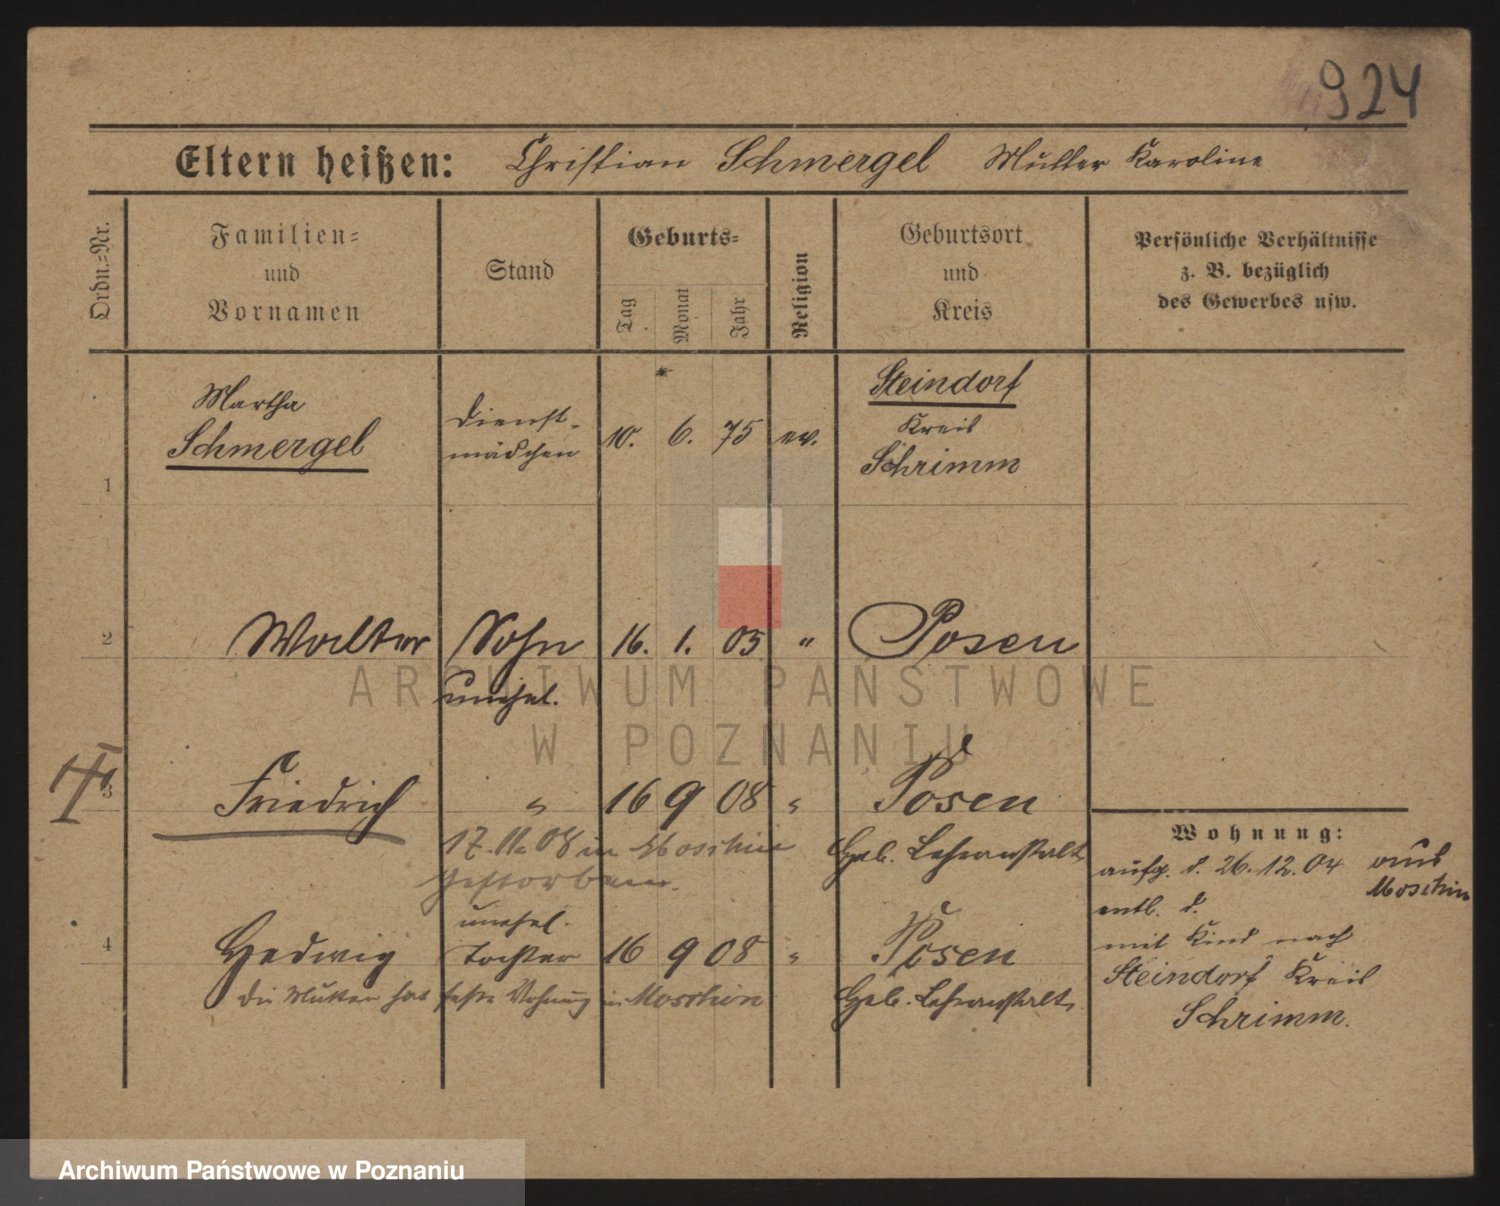 924
Eltern heißen: Christian Schmergel Mutter Karoline
Ordn.=Nr.
Familien=
und
Vornamen
Stand
Geburts=
Tag
Monat
Jahr
Religion
Geburtsort
und
Kreis
Persönliche Verhältnisse
z. B. bezüglich
des Gewerbes usw.
1
Martha
Schmergel
Dienst-
mädchen
10. 6. 75 ev.
Steindorf
Kreis
Schrimm
2
Walter
Sohn
unehel.
16. 1. 05 "
Posen
3
Friedrich
"
16 9 08 "
Posen
Geb. Lehranstalt
17. 11. 08 in Moschin
gestorben.
4
Hedwig
unehel.
Tochter
16 9 08 "
Posen
Geb. Lehranstalt
Die Mutter hat feste Wohnung in Moschin
Wohnung:
aufg. d. 26.12.04 aus
Moschin
entl. d.
mit Kind nach
Steindorf Kreis
Schrimm.
ARCHIWUM PAŃSTWOWE
W POZNANIU
Archiwum Państwowe w Poznaniu